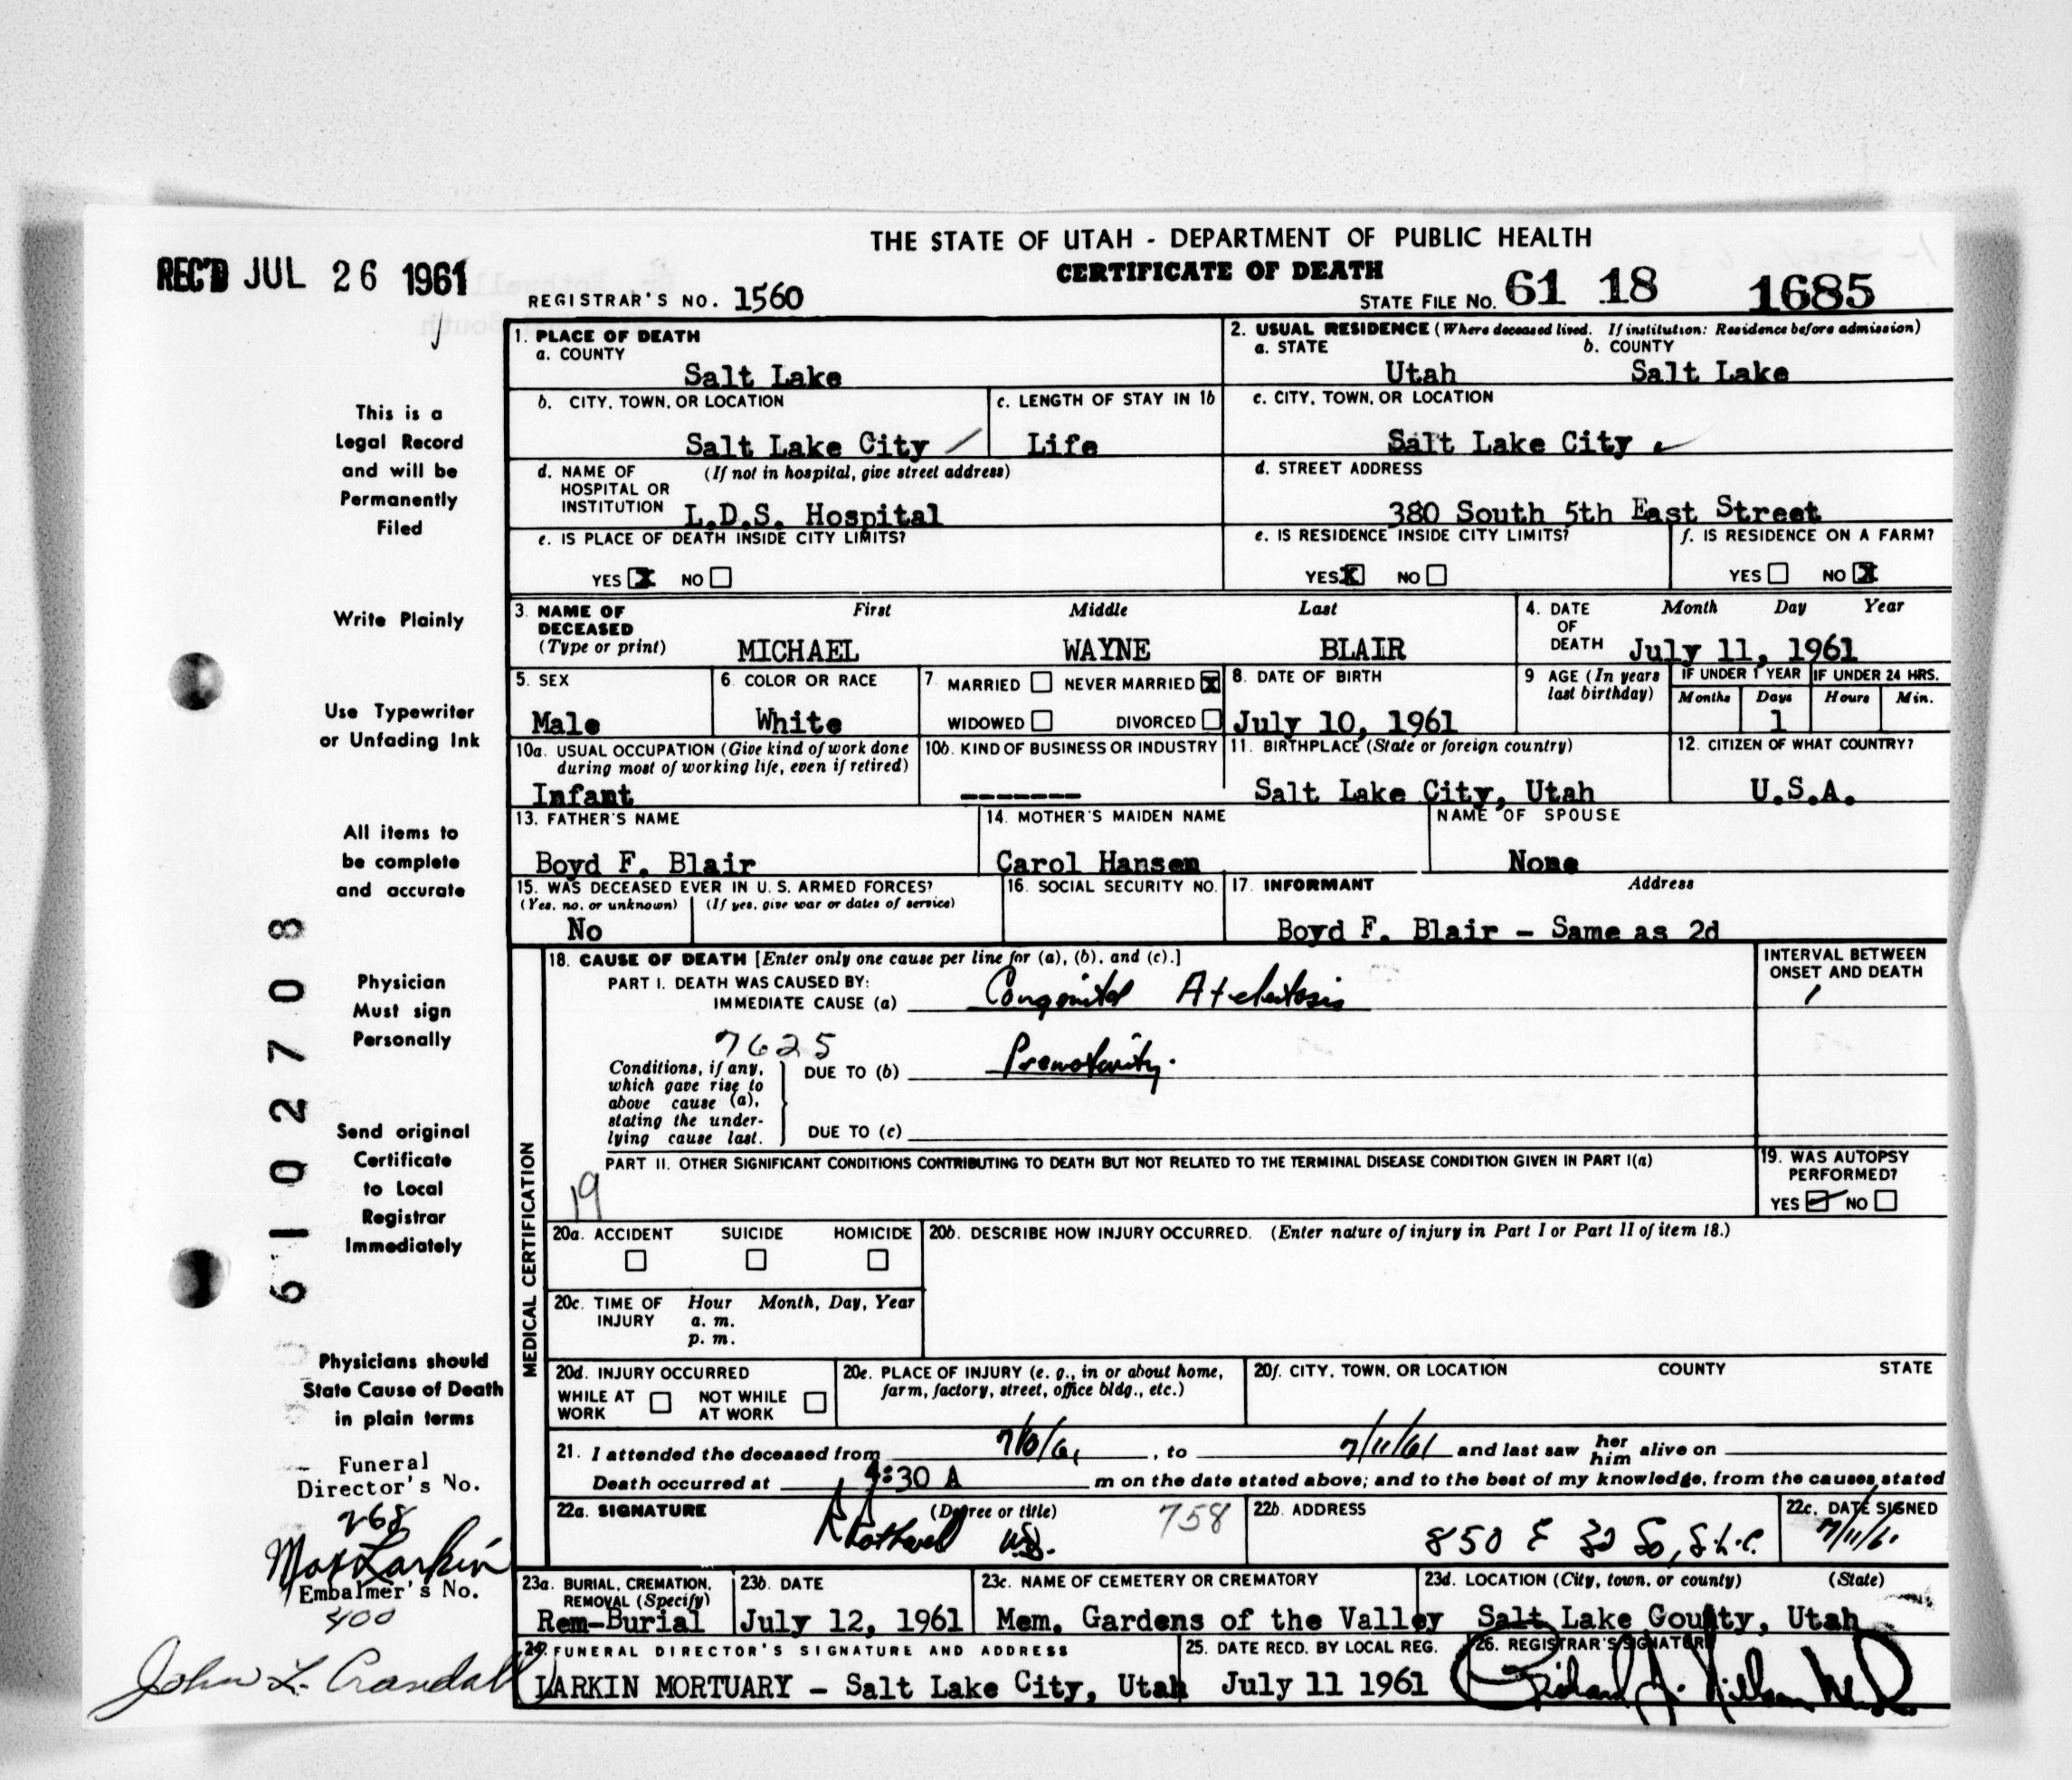 THE STATE OF UTAH - DEPARTMENT OF PUBLIC HEALTH
CERTIFICATE OF DEATH
REC'D JUL 26 1961
REGISTRAR'S NO. 1560
STATE FILE NO. 61 18 1685
1. PLACE OF DEATH
a. COUNTY
Salt Lake
2. USUAL RESIDENCE (Where deceased lived. If institution: Residence before admission)
a. STATE b. COUNTY
Utah Salt Lake
b. CITY, TOWN, OR LOCATION
Salt Lake City
c. LENGTH OF STAY IN 1b
Life
c. CITY, TOWN, OR LOCATION
Salt Lake City
d. NAME OF HOSPITAL OR INSTITUTION (If not in hospital, give street address)
L.D.S. Hospital
d. STREET ADDRESS
380 South 5th East Street
e. IS PLACE OF DEATH INSIDE CITY LIMITS?
YES X NO
e. IS RESIDENCE INSIDE CITY LIMITS?
YES X NO
f. IS RESIDENCE ON A FARM?
YES NO X
3. NAME OF DECEASED (Type or print)
First Middle Last
MICHAEL WAYNE BLAIR
4. DATE OF DEATH Month Day Year
July 11, 1961
5. SEX
Male
6. COLOR OR RACE
White
7. MARRIED NEVER MARRIED X
WIDOWED DIVORCED
8. DATE OF BIRTH
July 10, 1961
9 AGE (In years last birthday)
IF UNDER 1 YEAR IF UNDER 24 HRS.
Months Days Hours Min.
1
10a. USUAL OCCUPATION (Give kind of work done during most of working life, even if retired)
Infant
10b. KIND OF BUSINESS OR INDUSTRY
-------
11. BIRTHPLACE (State or foreign country)
Salt Lake City, Utah
12. CITIZEN OF WHAT COUNTRY?
U.S.A.
13. FATHER'S NAME
Boyd F. Blair
14. MOTHER'S MAIDEN NAME
Carol Hansen
NAME OF SPOUSE
None
15. WAS DECEASED EVER IN U. S. ARMED FORCES?
(Yes, no, or unknown) (If yes, give war or dates of service)
No
16. SOCIAL SECURITY NO.
17. INFORMANT Address
Boyd F. Blair - Same as 2d
MEDICAL CERTIFICATION
18. CAUSE OF DEATH [Enter only one cause per line for (a), (b), and (c).]
PART I. DEATH WAS CAUSED BY:
IMMEDIATE CAUSE (a) Congenital Atelectosis
7625
Conditions, if any, which gave rise to above cause (a), stating the underlying cause last.
DUE TO (b) Prematurity.
DUE TO (c)
INTERVAL BETWEEN ONSET AND DEATH
PART II. OTHER SIGNIFICANT CONDITIONS CONTRIBUTING TO DEATH BUT NOT RELATED TO THE TERMINAL DISEASE CONDITION GIVEN IN PART I(a)
19
19. WAS AUTOPSY PERFORMED?
YES NO
20a. ACCIDENT SUICIDE HOMICIDE
20b. DESCRIBE HOW INJURY OCCURRED. (Enter nature of injury in Part I or Part II of item 18.)
20c. TIME OF INJURY Hour Month, Day, Year
a. m.
p. m.
20d. INJURY OCCURRED
WHILE AT WORK NOT WHILE AT WORK
20e. PLACE OF INJURY (e. g., in or about home, farm, factory, street, office bldg., etc.)
20f. CITY, TOWN, OR LOCATION COUNTY STATE
21. I attended the deceased from 7/10/61, to 7/11/61 and last saw her him alive on
Death occurred at 4:30 A m on the date stated above; and to the best of my knowledge, from the causes stated
22a. SIGNATURE (Degree or title)
758
22b. ADDRESS
850 E So, S.L.C.
22c. DATE SIGNED
7/11/61
23a. BURIAL, CREMATION, REMOVAL (Specify)
Rem-Burial
23b. DATE
July 12, 1961
23c. NAME OF CEMETERY OR CREMATORY
Mem. Gardens of the Valley
23d. LOCATION (City, town, or county) (State)
Salt Lake County, Utah
24. FUNERAL DIRECTOR'S SIGNATURE AND ADDRESS
LARKIN MORTUARY - Salt Lake City, Utah
25. DATE RECD. BY LOCAL REG.
July 11 1961
26. REGISTRAR'S SIGNATURE
This is a
Legal Record
and will be
Permanently
Filed
Write Plainly
Use Typewriter
or Unfading Ink
All items to
be complete
and accurate
Physician
Must sign
Personally
Send original
Certificate
to Local
Registrar
Immediately
Physicians should
State Cause of Death
in plain terms
Funeral
Director's No.
268
Max Larkin
Embalmer's No.
400
John L. Crandall
6102708